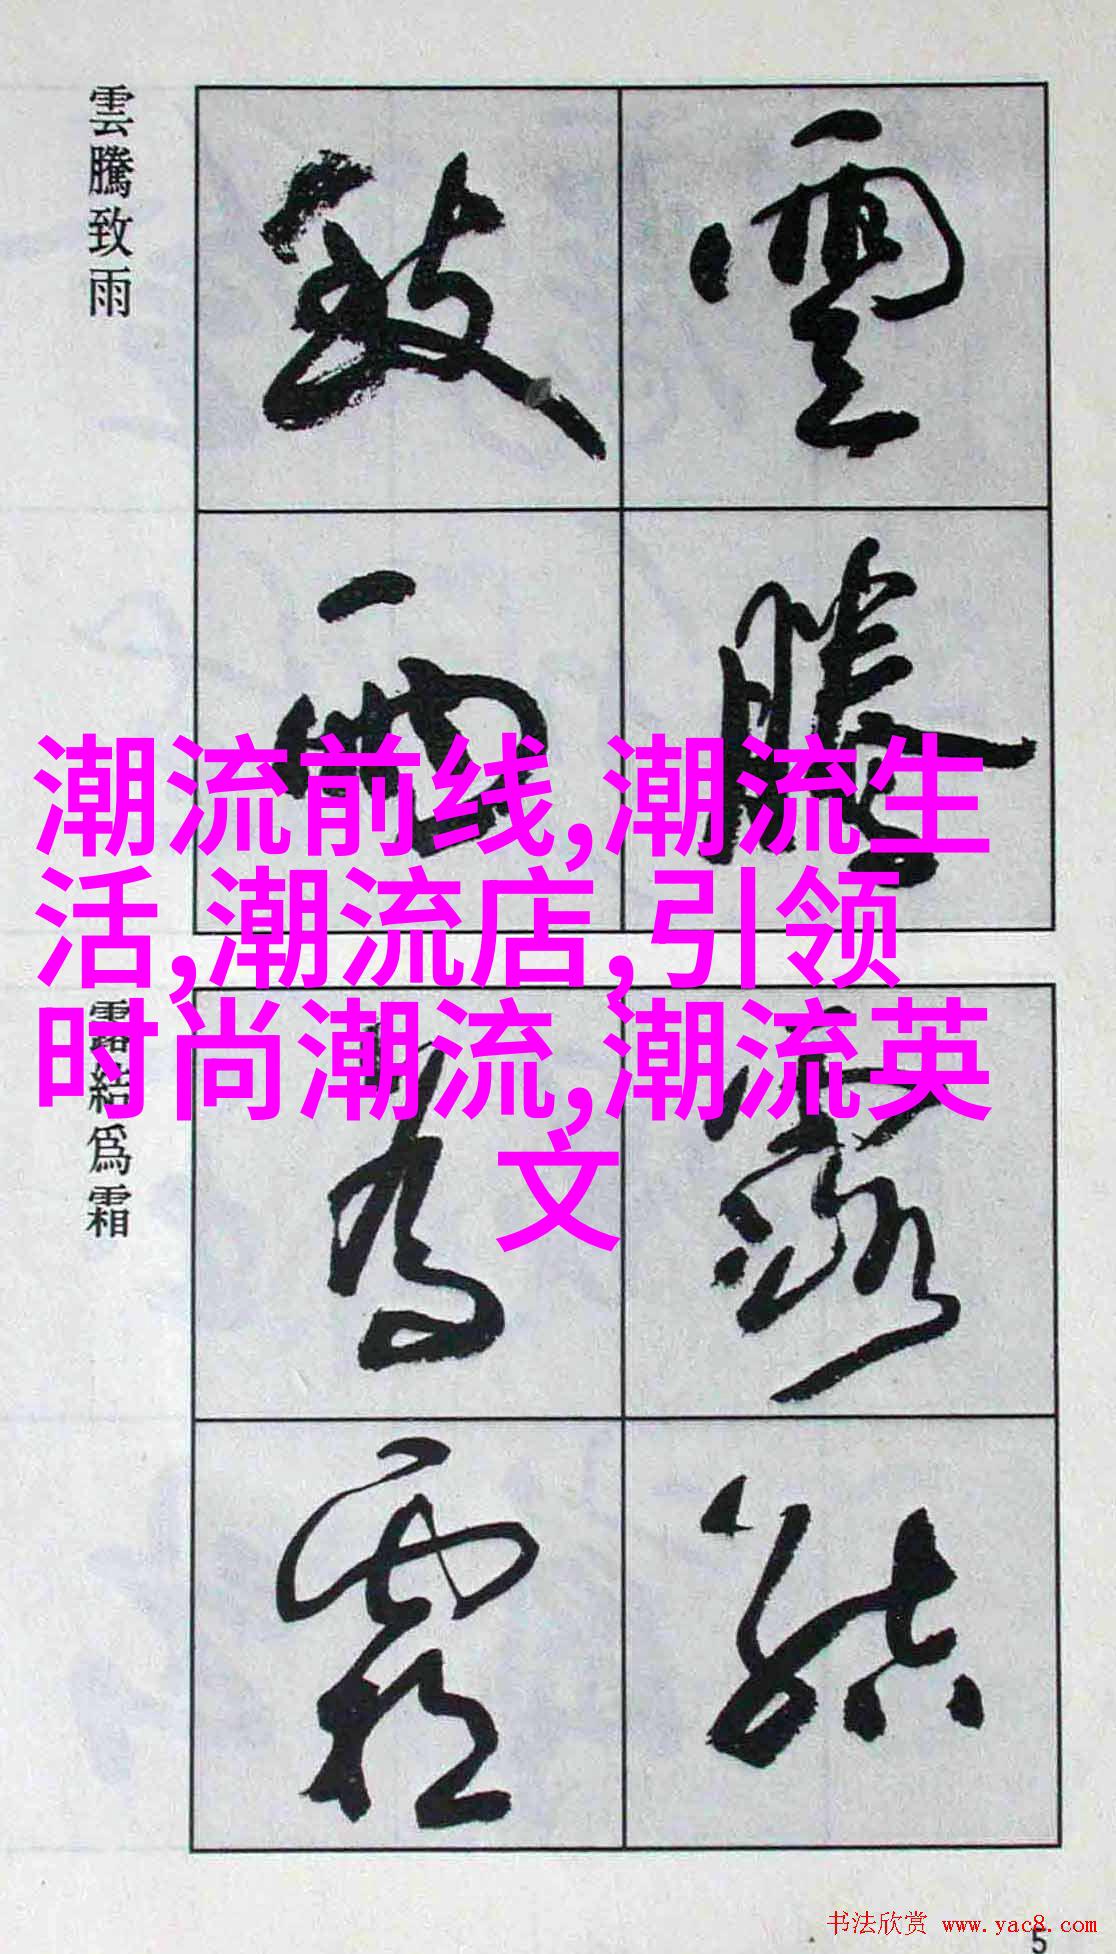 雲騰致雨
雲
騰
致
雨
潮流前线,潮流生
活,潮流店,引领
时尚潮流,潮流英
文
露結爲霜
露
結
爲
霜
书法欣赏 www.yac8.com
5